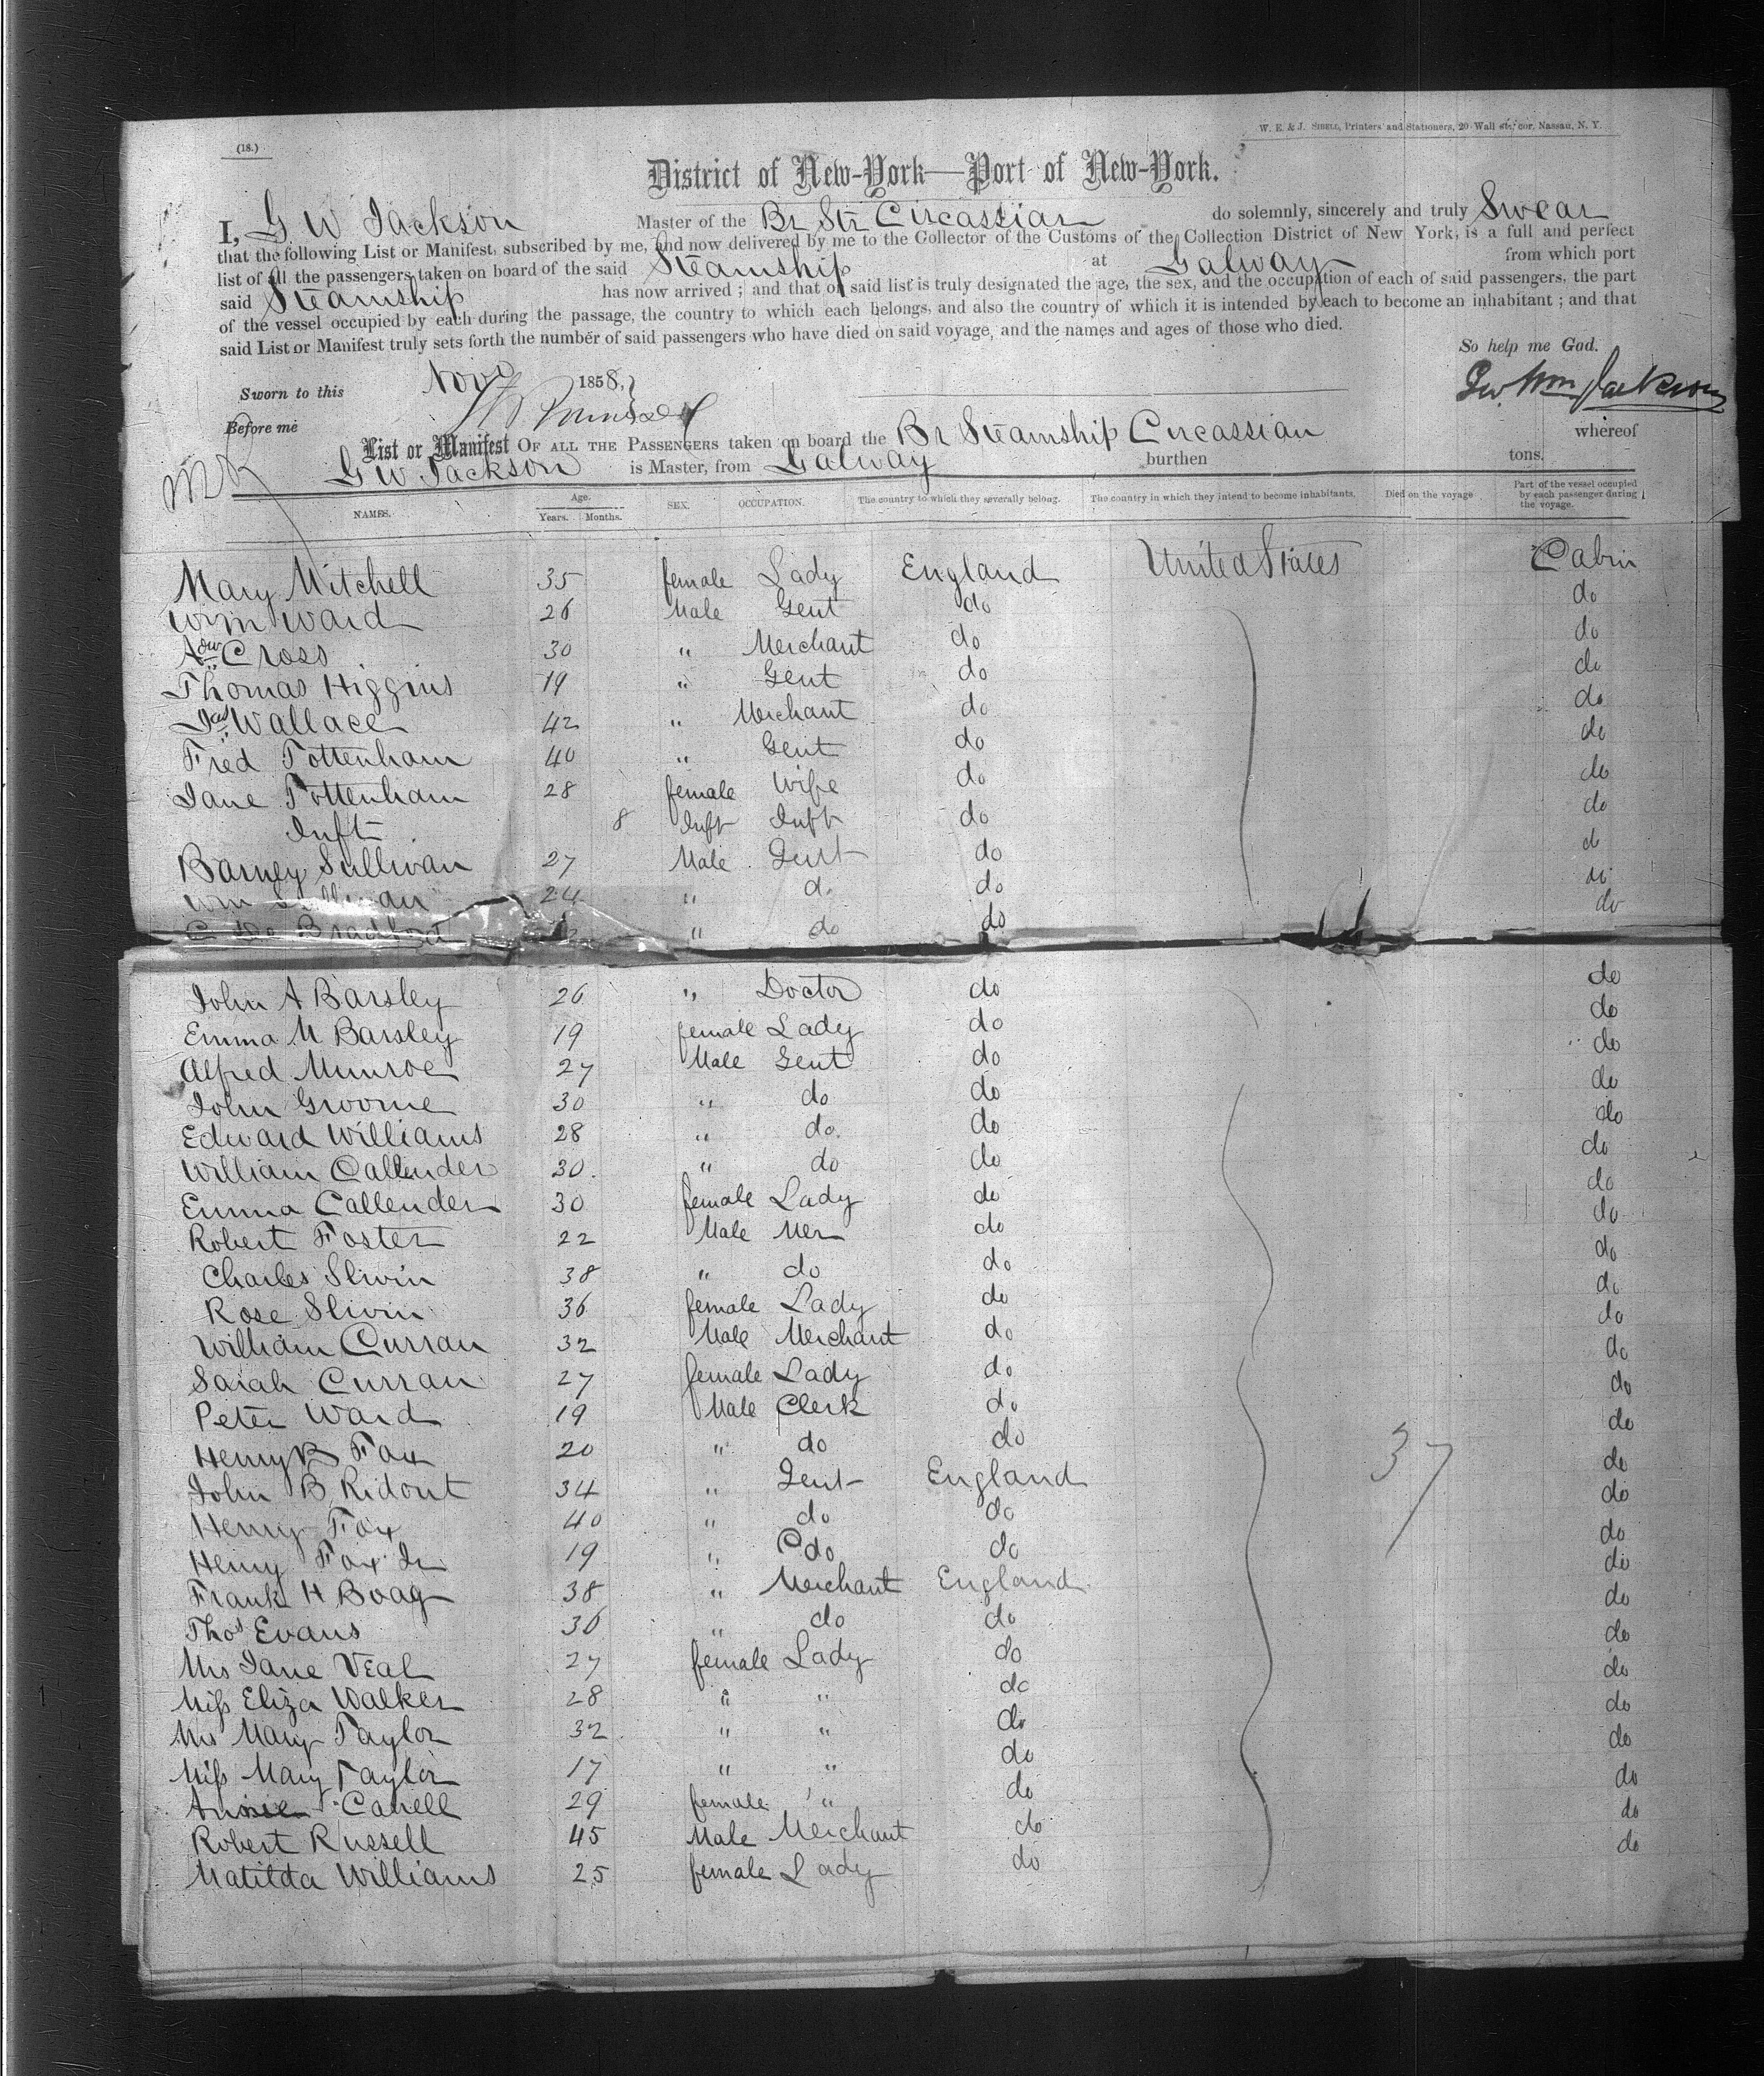 W. E. & J. SIBELL, Printers and Stationers, 20 Wall st., cor. Nassau, N. Y.
(18.)
District of New-York—Port of New-York.
I, G W Jackson Master of the Br Str Circassian do solemnly, sincerely and truly Swear
that the following List or Manifest, subscribed by me, and now delivered by me to the Collector of the Customs of the Collection District of New York, is a full and perfect
list of all the passengers taken on board of the said Steamship at Galway from which port
said Steamship has now arrived ; and that on said list is truly designated the age, the sex, and the occupation of each of said passengers, the part
of the vessel occupied by each during the passage, the country to which each belongs, and also the country of which it is intended by each to become an inhabitant ; and that
said List or Manifest truly sets forth the number of said passengers who have died on said voyage, and the names and ages of those who died.
So help me God.
Sworn to this Nov 1858,
Geo Wm Jackson
Before me
List or Manifest OF ALL THE PASSENGERS taken on board the Br Steamship Circassian whereof
G W Jackson is Master, from Galway burthen tons.
NAMES. Age. Years. Months. SEX. OCCUPATION. The country to which they severally belong. The country in which they intend to become inhabitants. Died on the voyage Part of the vessel occupied by each passenger during the voyage.
Mary Mitchell 35 female Lady England United States Cabin
Wm Ward 26 Male Gent do do
Adw Cross 30 " Merchant do do
Thomas Higgins 19 " Gent do do
Jas Wallace 42 " Merchant do do
Fred Tottenham 40 " Gent do do
Jane Tottenham 28 female Wife do do
Inft 8 Inft Inft do do
Barney Sullivan 27 Male Gent do do
Wm Sullivan 24 " do do do
" do do do
John A Barsley 26 " Doctor do do
Emma M Barsley 19 female Lady do do
Alfred Munroe 27 Male Gent do do
John Groome 30 " do do do
Edward Williams 28 " do. do do
William Callender 30. " do do do
Emma Callender 30 female Lady do do
Robert Foster 22 Male Mer do do
Charles Slivin 38 " do do do
Rose Slivin 36 female Lady do do
William Curran 32 Male Merchant do do
Sarah Curran 27 female Lady do do
Peter Ward 19 Male Clerk do do
Henry B Fox 20 " do do do
John B Ridout 34 " Gent England 37 do
Henry Fox 40 " do do do
Henry Fox Jr 19 " do do do
Frank H Boag 38 " Merchant England do
Thos Evans 36 " do do do
Mrs Jane Veal 27 female Lady do do
Miss Eliza Walker 28 " " do do
Mrs Mary Taylor 32 " " do do
Miss Mary Taylor 17 " " do do
Annie Cavell 29 female " do do
Robert Russell 45 Male Merchant do do
Matilda Williams 25 female Lady do do